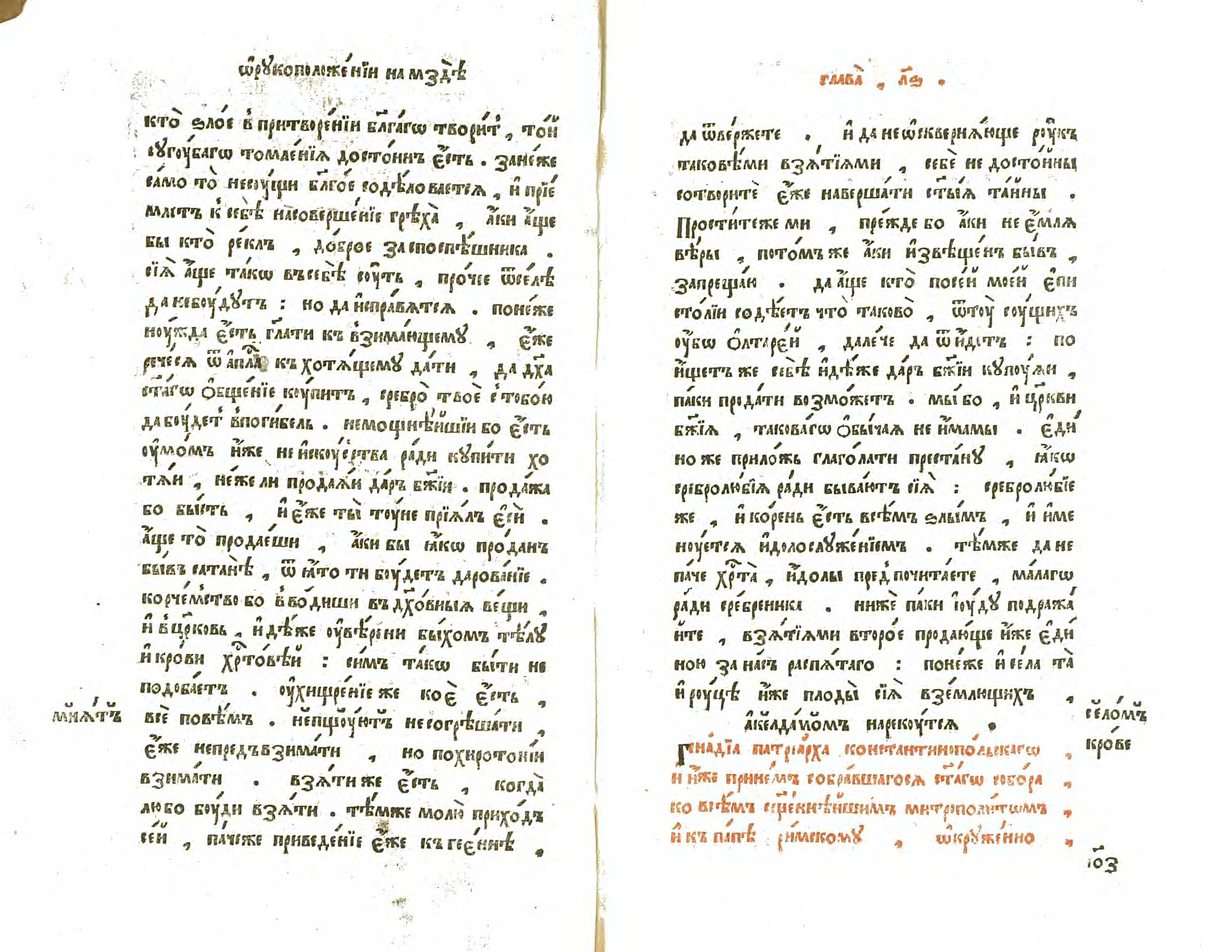 ѡ҆рꙋкоположе́нїи на мздѣ̀
кто̀ ѕло́е в̾притворе́нїи бл҃га́гѡ твори́т̾ , то́й
сꙋгꙋ́багѡ томле́нїѧ досто́инъ є҆́сть . зане́же
само то̀ несꙋ́щи бл҃го́е содѣ́ловаетсѧ , и҆ прїе́
млетъ к̾ себѣ̀ насоверше́нїе грѣха̀ , а҆́ки а҆́ще
бы кто̀ ре́клъ , до́брое заспоспѣ́шника .
сїѧ̀ а҆́ще та́кѡ въсебѣ̀ сꙋ́ть , про́чее ѿсе́лѣ
да небꙋ́дꙋтъ : но да и҆спра́вѧтсѧ . поне́же
нꙋ́жда є҆́сть гл҃ати къ взима́ющемꙋ , є҆́же
рече́сѧ ѿ а҆пл҃а къ хотѧ́щемꙋ да́ти , да дх҃а
ст҃а́гѡ ѻ҆бще́нїе кꙋ́питъ , сребро̀ твоѐ с̾тобо́ю
да бꙋ́детъ̾ в̾поги́бель . немощнѣ́йшїи бо є҆́сть
ᲂу҆мо́мъ и҆́же не и҆скꙋ́ства ра́ди кꙋпи́ти хо
тѧ́и , не́же ли продаѧ́и да́ръ бж҃їи . прода́жа
бо бы́сть , и҆ є҆́же ты̀ тꙋ́не прїѧ́лъ є҆сѝ .
а҆́ще то̀ продае́ши , а҆́ки бы ꙗ҆́кѡ про́данъ
бы́въ сатанѣ̀ , ѿ ꙗ҆́то ти бꙋ́детъ дарова́нїе .
корче́мство бо в̾во́диши въ дх҃о́вныѧ ве́щи ,
и҆ в̾ цр҃ковь , и҆дѣ́же ᲂу҆вѣ́рени бы́хомъ тѣ́лꙋ
и҆ кро́ви хр҃то́вѣй : си́мъ та́кѡ бы́ти не
подоба́етъ . ᲂу҆хищре́нїе же коѐ є҆́сть ,
мнѧ́тъ
всѐ повѣ́мъ . непщꙋ́ютъ несогрѣша́ти ,
є҆́же непредъвзима́ти , но по хиротоні́и
взима́ти . взѧ́ти же є҆́сть , когда̀
лю́бо бꙋ́ди взѧ́ти . тѣ́мже молю̀ прихо́дъ
се́й , па́чеже приведе́нїе є҆́же къ геє́ннѣ ,
глава̀ , л҃ѕ .
да ѿве́ржете . и҆ да не ѡ҆сквернѧ́юще рꙋ́къ
таковѣ́ми взѧ́тїѧми , себѐ не досто́йны
сотвори́те є҆́же наверша́ти ст҃ы́ѧ та́йны .
Прости́теже ми , пре́жде бо а҆́ки не є҆́млѧ
вѣ́ры , пото́мъ же а҆́ки и҆звѣ́щенъ бы́въ ,
запреща́ю . да а҆́ще кто̀ посе́й мое́й є҆пи
сто́лїи содѣ́етъ что̀ таково̀ , ѿтꙋ́ сꙋ́щихъ
ᲂу҆́бѡ ѻ҆лтаре́й , дале́че да ѿи́детъ : по
и҆́щетъ же себѣ̀ и҆дѣ́же да́ръ бж҃їи кꙋпꙋ́ѧи ,
па́ки прода́ти возмо́жетъ . мы́ бо , и҆ цр҃кви
бж҃їѧ , такова́гѡ ѻ҆бы́чаѧ не и҆́мамы . є҆ди́
но же прило́жь глаго́лати преста́нꙋ , ꙗ҆́кѡ
сребролю́бїѧ ра́ди быва́ютъ сїѧ̀ : сребролю́бїе
же , и҆ ко́рень є҆́сть всѣ́мъ ѕлы́мъ , и҆ име
нꙋ́етсѧ и҆долослꙋже́нїемъ . тѣ́мже да не
па́че хр҃та̀ , и҆́долы пред̾почита́ете , ма́лагѡ
ра́ди сре́бреника . ниже́ па́ки і҆ю́дꙋ подража́
йте , взѧ́тїѧми второ́е продаю́ще и҆́же є҆ди́
ною за на́съ распѧ́таго : поне́же и҆ се́ла та̀
и҆ рꙋ́цѣ и҆́же плоды̀ сїѧ̀ взе́млющихъ ,
а҆келдамо́мъ нарекꙋ́тсѧ .
село́мъ
кро́ве
Гена́дїа патрїа́рха константинопо́льскагѡ ,
и и҆́же при не́мъ собра́вшагосѧ ст҃а́гѡ собо́ра ,
ко всѣ́мъ сщ҃е́ннѣйшимъ митрополи́тѡмъ ,
и҆ къ па́пѣ ри́мскомꙋ , ѡ҆крꙋ́женно ,
і҃ѻз